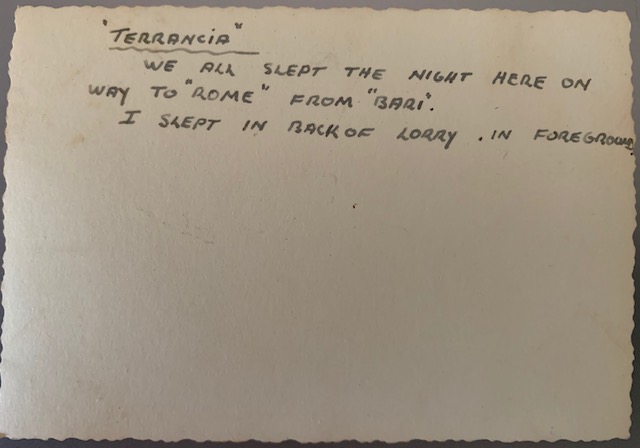 "TERRANCIA"
WE ALL SLEPT THE NIGHT HERE ON
WAY TO "ROME" FROM "BARI".
I SLEPT IN BACK OF LORRY . IN FOREGROUND.